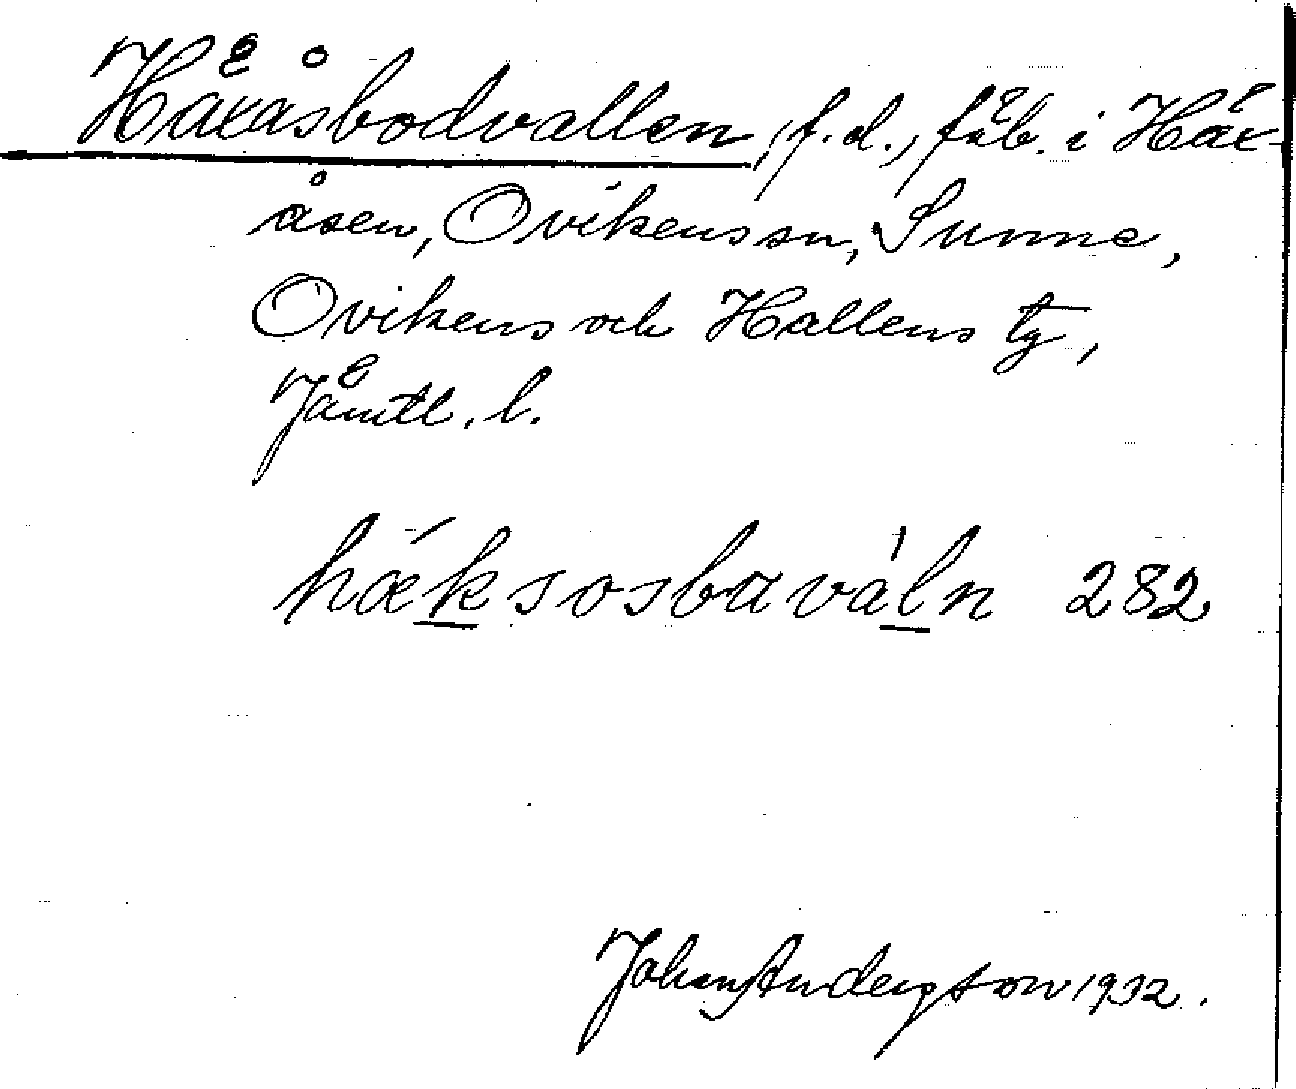 Häxåsbodvallen, f.d., fäb. i Häx-
åsen, Ovikens sn, Sunne,
Ovikens och Hallens tg,
Jämtl. l.
hæ̀ksosbaváln 282
John Andersson 1932.